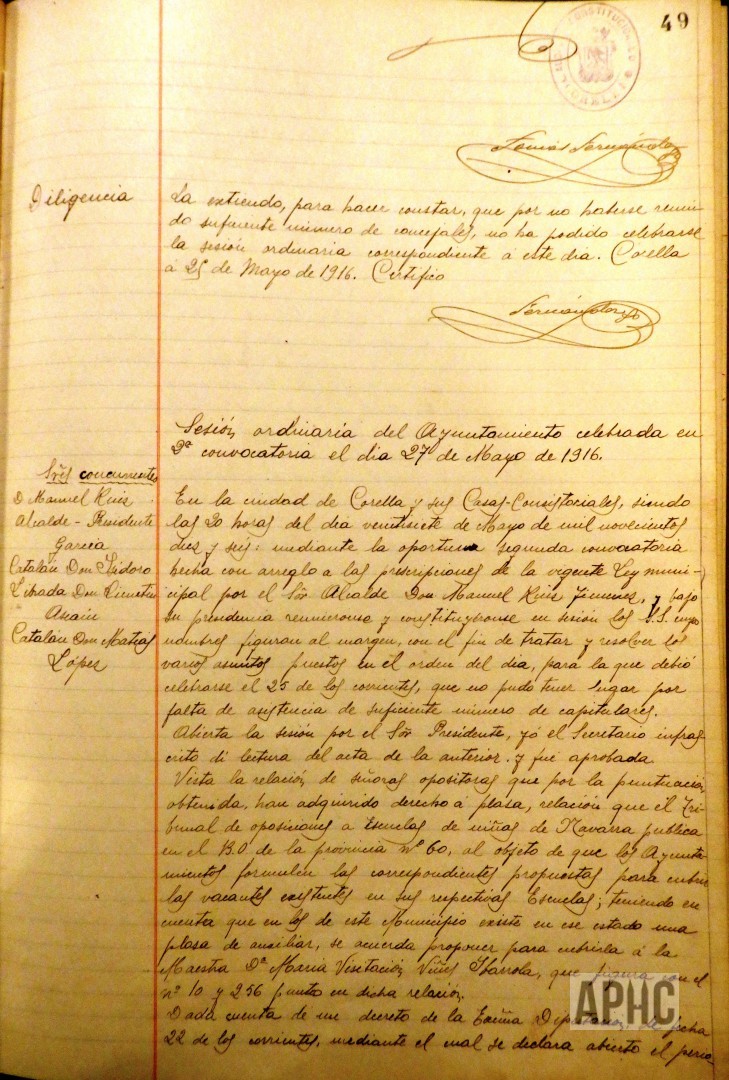 49
CONSTITUCION
CORELLA
Tomás Fernández
Diligencia
La extiendo, para hacer constar, que por no haberse reuni-
do suficiente número de concejales, no ha podido celebrarse
la sesión ordinaria correspondiente a este dia. Corella
á 25 de Mayo de 1916. Certifico
Fernández
Sesión ordinaria del Ayuntamiento celebrada en
2ª convocatoria el dia 27 de Mayo de 1916.
Sres concurrentes
D Manuel Ruiz
Alcalde-Presidente
Garcia
Catalán Don Isidoro
Librada Don
Catalán Don Matias
López
En la ciudad de Corella y sus Casas-Consistoriales, siendo
las 20 horas del dia veintisiete de Mayo de mil novecientos
diez y seis: mediante la oportuna segunda convocatoria
hecha con arreglo a las prescripciones de la vigente Ley muni-
cipal por el Sor Alcalde Don Manuel Ruiz Jimenez, y bajo
su presidencia y constituyronse en sesión los S.S. cuyos
nombres figuran al margen, con el fin de tratar y resolver los
varios asuntos puestos en el orden del dia, para la que debió
celebrarse el 25 de los corrientes, que no pudo tener lugar por
falta de asistencia de suficiente número de capitulares.
Abierta la sesión por el Sor Presidente, yó el Secretario infras-
crito di lectura del acta de la anterior y fue aprobada.
Vista la relación de señoras opositoras que por la puntuación
obtenida, han adquirido derecho á plasa, relación que el Tri-
bunal de oposiciones a Escuelas de niñas de Navarra publica
en el B.O. de la provincia nº 60, al objeto de que los Ayunta-
mientos formulen las correspondientes propuestas para cubrir
las vacantes existentes en sus respectivas Escuelas; teniendo en
cuenta que en las de este Municipio existe en ese estado una
plasa de auxiliar, se acuerda proponer para cubrirla á la
Maestra Dª Maria Visitación Viñes Ibarrola, que figura con el
nº 10 y 256 puntos en dicha relación.
Dada cuenta de un decreto de la Excma Diputación de fecha
22 de los corrientes, mediante el cual se declara abierto el perio-
APHC